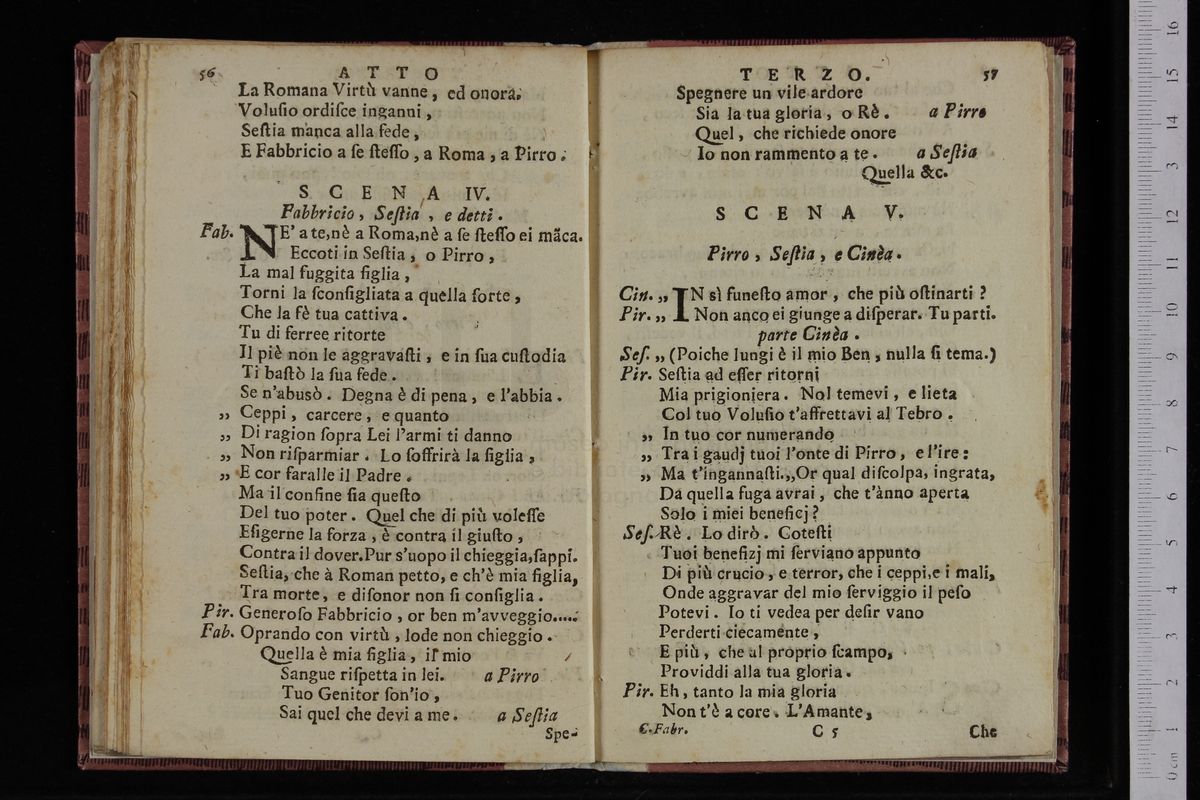 56 ATTO
La Romana Virtù vanne, ed onora.
Voluſio ordiſce inganni,
Seſtia manca alla fede,
E Fabbricio a ſe ſteſſo, a Roma, a Pirro.
SCENA IV.
Fabbricio, Seſtia, e detti.
Fab. NE' a te,nè a Roma,nè a ſe ſteſſo ei māca.
Eccoti in Seſtia, o Pirro,
La mal fuggita figlia,
Torni la ſconſigliata a quella ſorte,
Che la fè tua cattiva.
Tu di ferree ritorte
Il piè non le aggravaſti, e in ſua cuſtodia
Ti baſtò la ſua fede.
Se n'abusò. Degna è di pena, e l'abbia.
„ Ceppi, carcere, e quanto
„ Di ragion ſopra Lei l'armi ti danno
„ Non riſparmiar. Lo ſoffrirà la figlia,
„ E cor faralle il Padre.
Ma il confine ſia queſto
Del tuo poter. Quel che di più voleſſe
Eſigerne la forza, è contra il giuſto,
Contra il dover.Pur s'uopo il chieggia,ſappi.
Seſtia, che à Roman petto, e ch'è mia figlia,
Tra morte, e diſonor non ſi conſiglia.
Pir. Generoſo Fabbricio, or ben m'avveggio.....
Fab. Oprando con virtù, lode non chieggio.
Quella è mia figlia, il mio
Sangue riſpetta in lei. a Pirro
Tuo Genitor ſon'io,
Sai quel che devi a me. a Seſtia
Spe-
TERZO. 57
Spegnere un vile ardore
Sia la tua gloria, o Rè. a Pirro
Quel, che richiede onore
Io non rammento a te. a Seſtia
Quella &c.
SCENA V.
Pirro, Seſtia, e Cinèa.
Cin. „ IN sì funeſto amor, che più oſtinarti?
Pir. „ Non anco ei giunge a diſperar. Tu parti.
parte Cinèa.
Seſ. „ (Poiche lungi è il mio Ben, nulla ſi tema.)
Pir. Seſtia ad eſſer ritorni
Mia prigioniera. Nol temevi, e lieta
Col tuo Voluſio t'affrettavi al Tebro.
„ In tuo cor numerando
„ Tra i gaudj tuoi l'onte di Pirro, e l'ire:
„ Ma t'ingannaſti.„Or qual diſcolpa, ingrata,
Da quella fuga avrai, che t'ànno aperta
Solo i miei beneficj?
Seſ. Rè. Lo dirò. Coteſti
Tuoi benefizj mi ſerviano appunto
Di più crucio, e terror, che i ceppi,e i mali,
Onde aggravar del mio ſerviggio il peſo
Potevi. Io ti vedea per deſir vano
Perderti ciecamente,
E più, che al proprio ſcampo,
Providdi alla tua gloria.
Pir. Eh, tanto la mia gloria
Non t'è a core. L'Amante,
C.Fabr. C 5 Che
0 cm 1 2 3 4 5 6 7 8 9 10 11 12 13 14 15 16